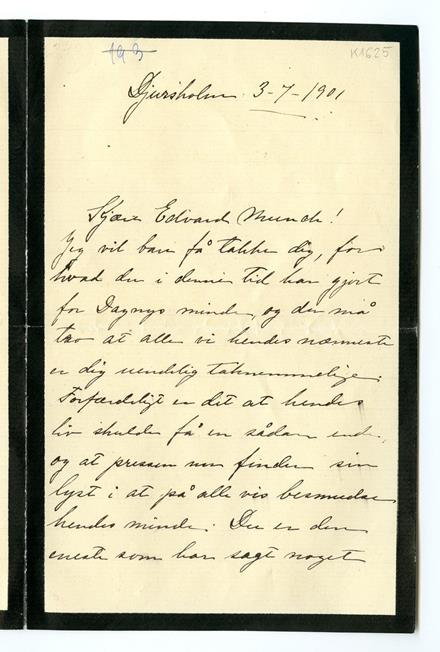 193
K1625
Djursholm 3-7-1901
Kjære Edvard Munch!
Jeg vil bare få takke dig, for
hvad du i denne tid har gjort
for Dagnys minde, og du må
tro at alle vi hendes nærmeste
er dig uendelig taknemmelige.
Forfærdeligt er det at hendes
liv skulde få en sådan ende,
og at pressen nu finder sin
lyst i at på alle vis besmudse
hendes minde. Du er den
eneste som har sagt noget